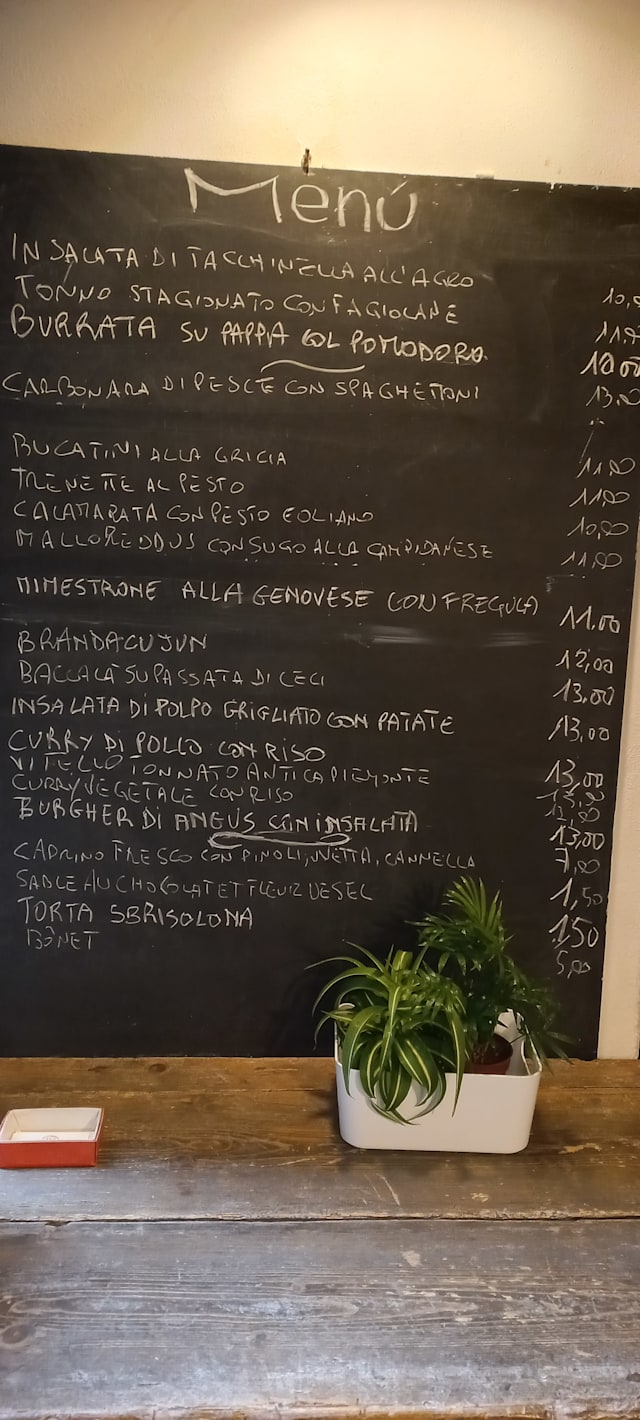 Menú
INSALATA DI TACCHINELLA ALL'AGRO 10,
TONNO STAGIONATO CON FAGIOLANE 11,
BURRATA SU PAPPA COL POMODORO 10 00
CARBONARA DI PESCE CON SPAGHETTONI 13,00
BUCATINI ALLA GRICIA 11,00
TRENETTE AL PESTO 11,00
CALAMARATA CON PESTO EOLIANO 10,00
MALLOREDDUS CON SUGO ALLA CAMPIDANESE 11,00
MINESTRONE ALLA GENOVESE CON FREGULA 11.00
BRANDACUJUN 12,00
BACCALÀ SU PASSATA DI CECI 13.00
INSALATA Di POLPO GRIGLIATO CON PATATE 13,00
CURRY Di POLLO CON RISO 13,00
VITELLO TONNATO ANTICA PIEMONTE
CURRY VEGETALE CON RISO 12,00
BURGHER DI ANGUS CON iNSALATA 13,00
CAPRINO FRESCO CON PINOLI, UVETTA, CANNELLA 7,00
SABLE AU CHOCOLAT ET FLEUR DE SEL 1,50
TORTA SBRISOLONA 1,50
BÔNET 5,00